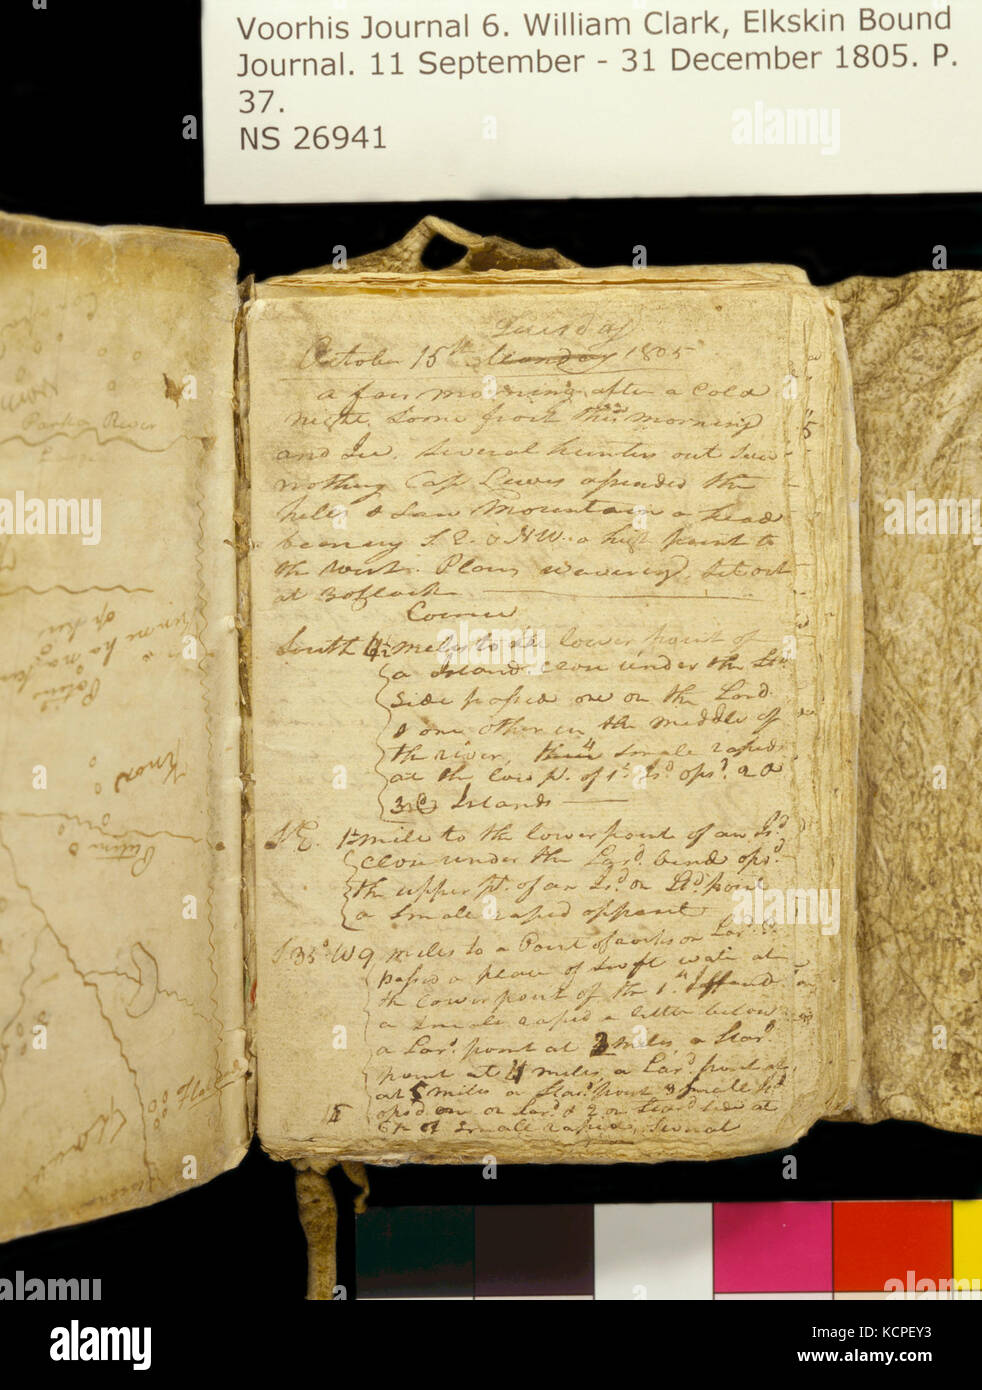 Voorhis Journal 6. William Clark, Elkskin Bound
Journal. 11 September - 31 December 1805. P.
37.
NS 26941
Tuesday
October 15th Monday 1805
a fair morning after a Cold
night. Some frost this morning
and Ice. Several hunters out Saw
nothing Cap Lewis assended the
hills & Saw Mountain a head
bearing S. E. & N W. a high point to
the West. Plains wavering. Set out
at 3 oClock
Course
South 4 miles to the lower point of
a Island Close under the Std
Side passed one on the Lard.
& one other in the middle of
the river, small rapid
at the low pt. of 1st Isd. opsd. 2d
3rd Islands
S E. 1 mile to the lower point of an Isd
Close under the Lard. bend opsd.
the upper pt. of an Isd on Std point
a Small rapid opposit
S 35° W 9 miles to a Point of rocks on Lard. S.
passed a place of Swift water at
the lower point of the 1st Island
a Small rapid a little below
a Lard. point at 2 miles, a Stard.
point at 4 miles a Lard. point at
at 5 miles a Stard. point & Small Isd.
opsd one on Lard & 2 on Stard Side at
6 Small rapid, Several
15
Parks River
alamy
Image ID: KCPEY3
www.alamy.com